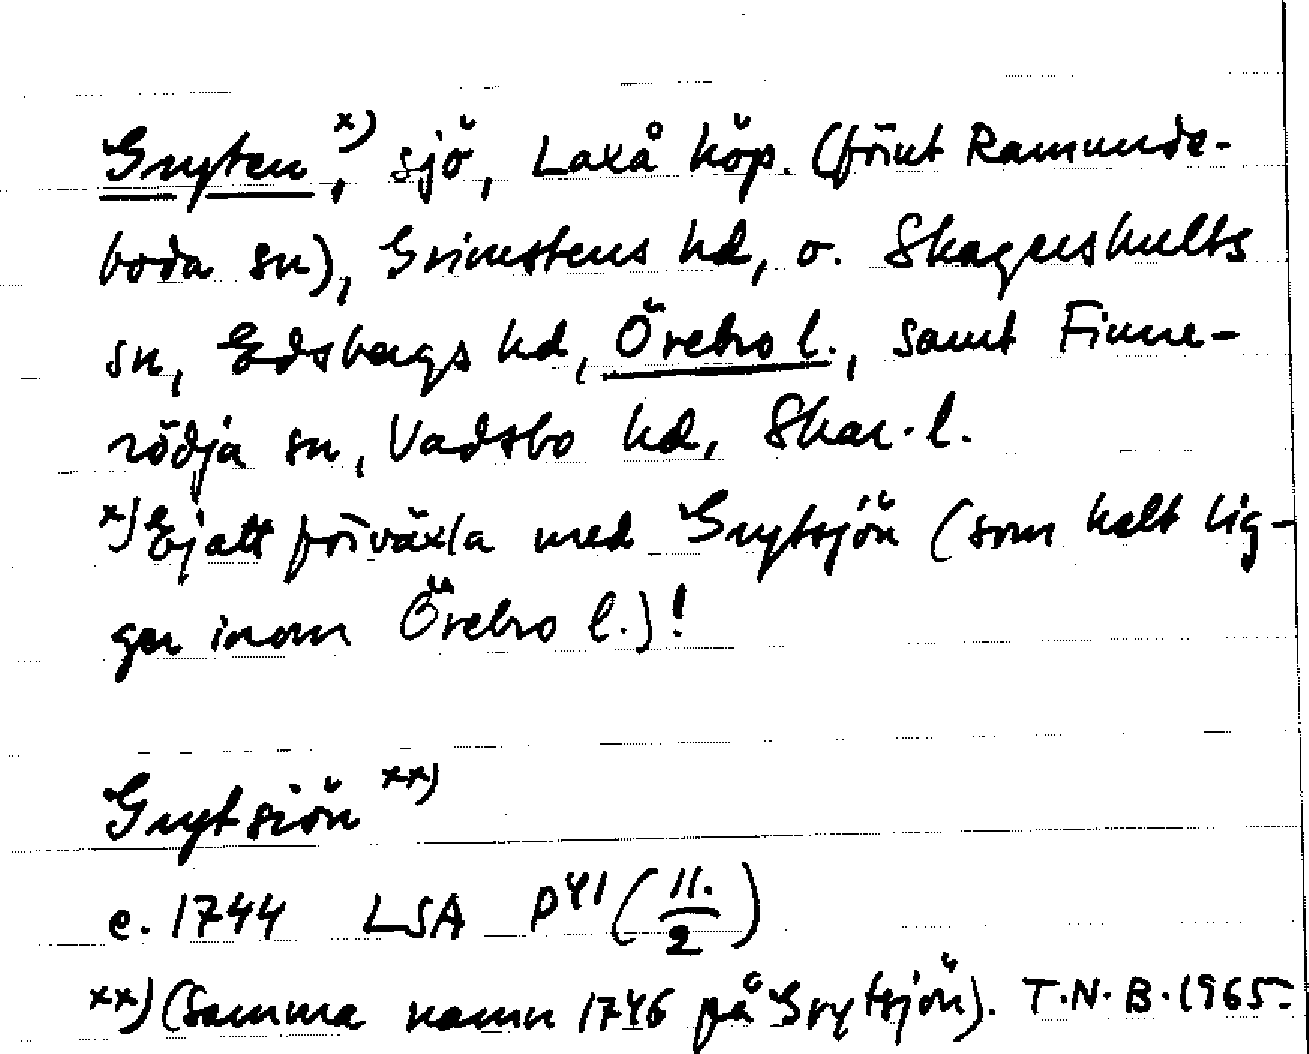 Gryten,x) sjö, Laxå köp. (förut Ramunde-
boda sn), Grimstens hd, o. Skagershults
sn, Edsbergs hd, Örebro l., samt Finne-
rödja sn, Vadsbo hd, Skar. l.
x) Ej att förväxla med Grytsjön (som helt lig-
ger inom Örebro l.)!
Grytsiön xx)
e. 1744 LSA P41 (11./2)
xx) (Samma namn 1746 på Grytsjön). T.N.B. 1965.